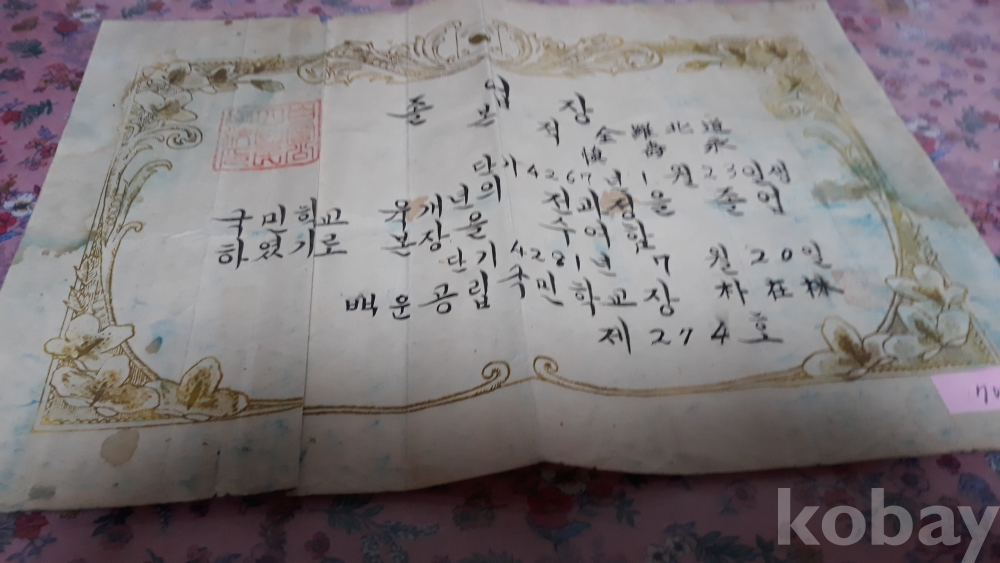 졸업장
본적 全羅北道
愼 壽 永
단기 4267년 1월 23일생
국민학교 육개년의 전과정을 졸업
하였기로 본장을 수여함
단기 4281년 7월 20일
백운공립국민학교장 朴在林
제 274호
kobay